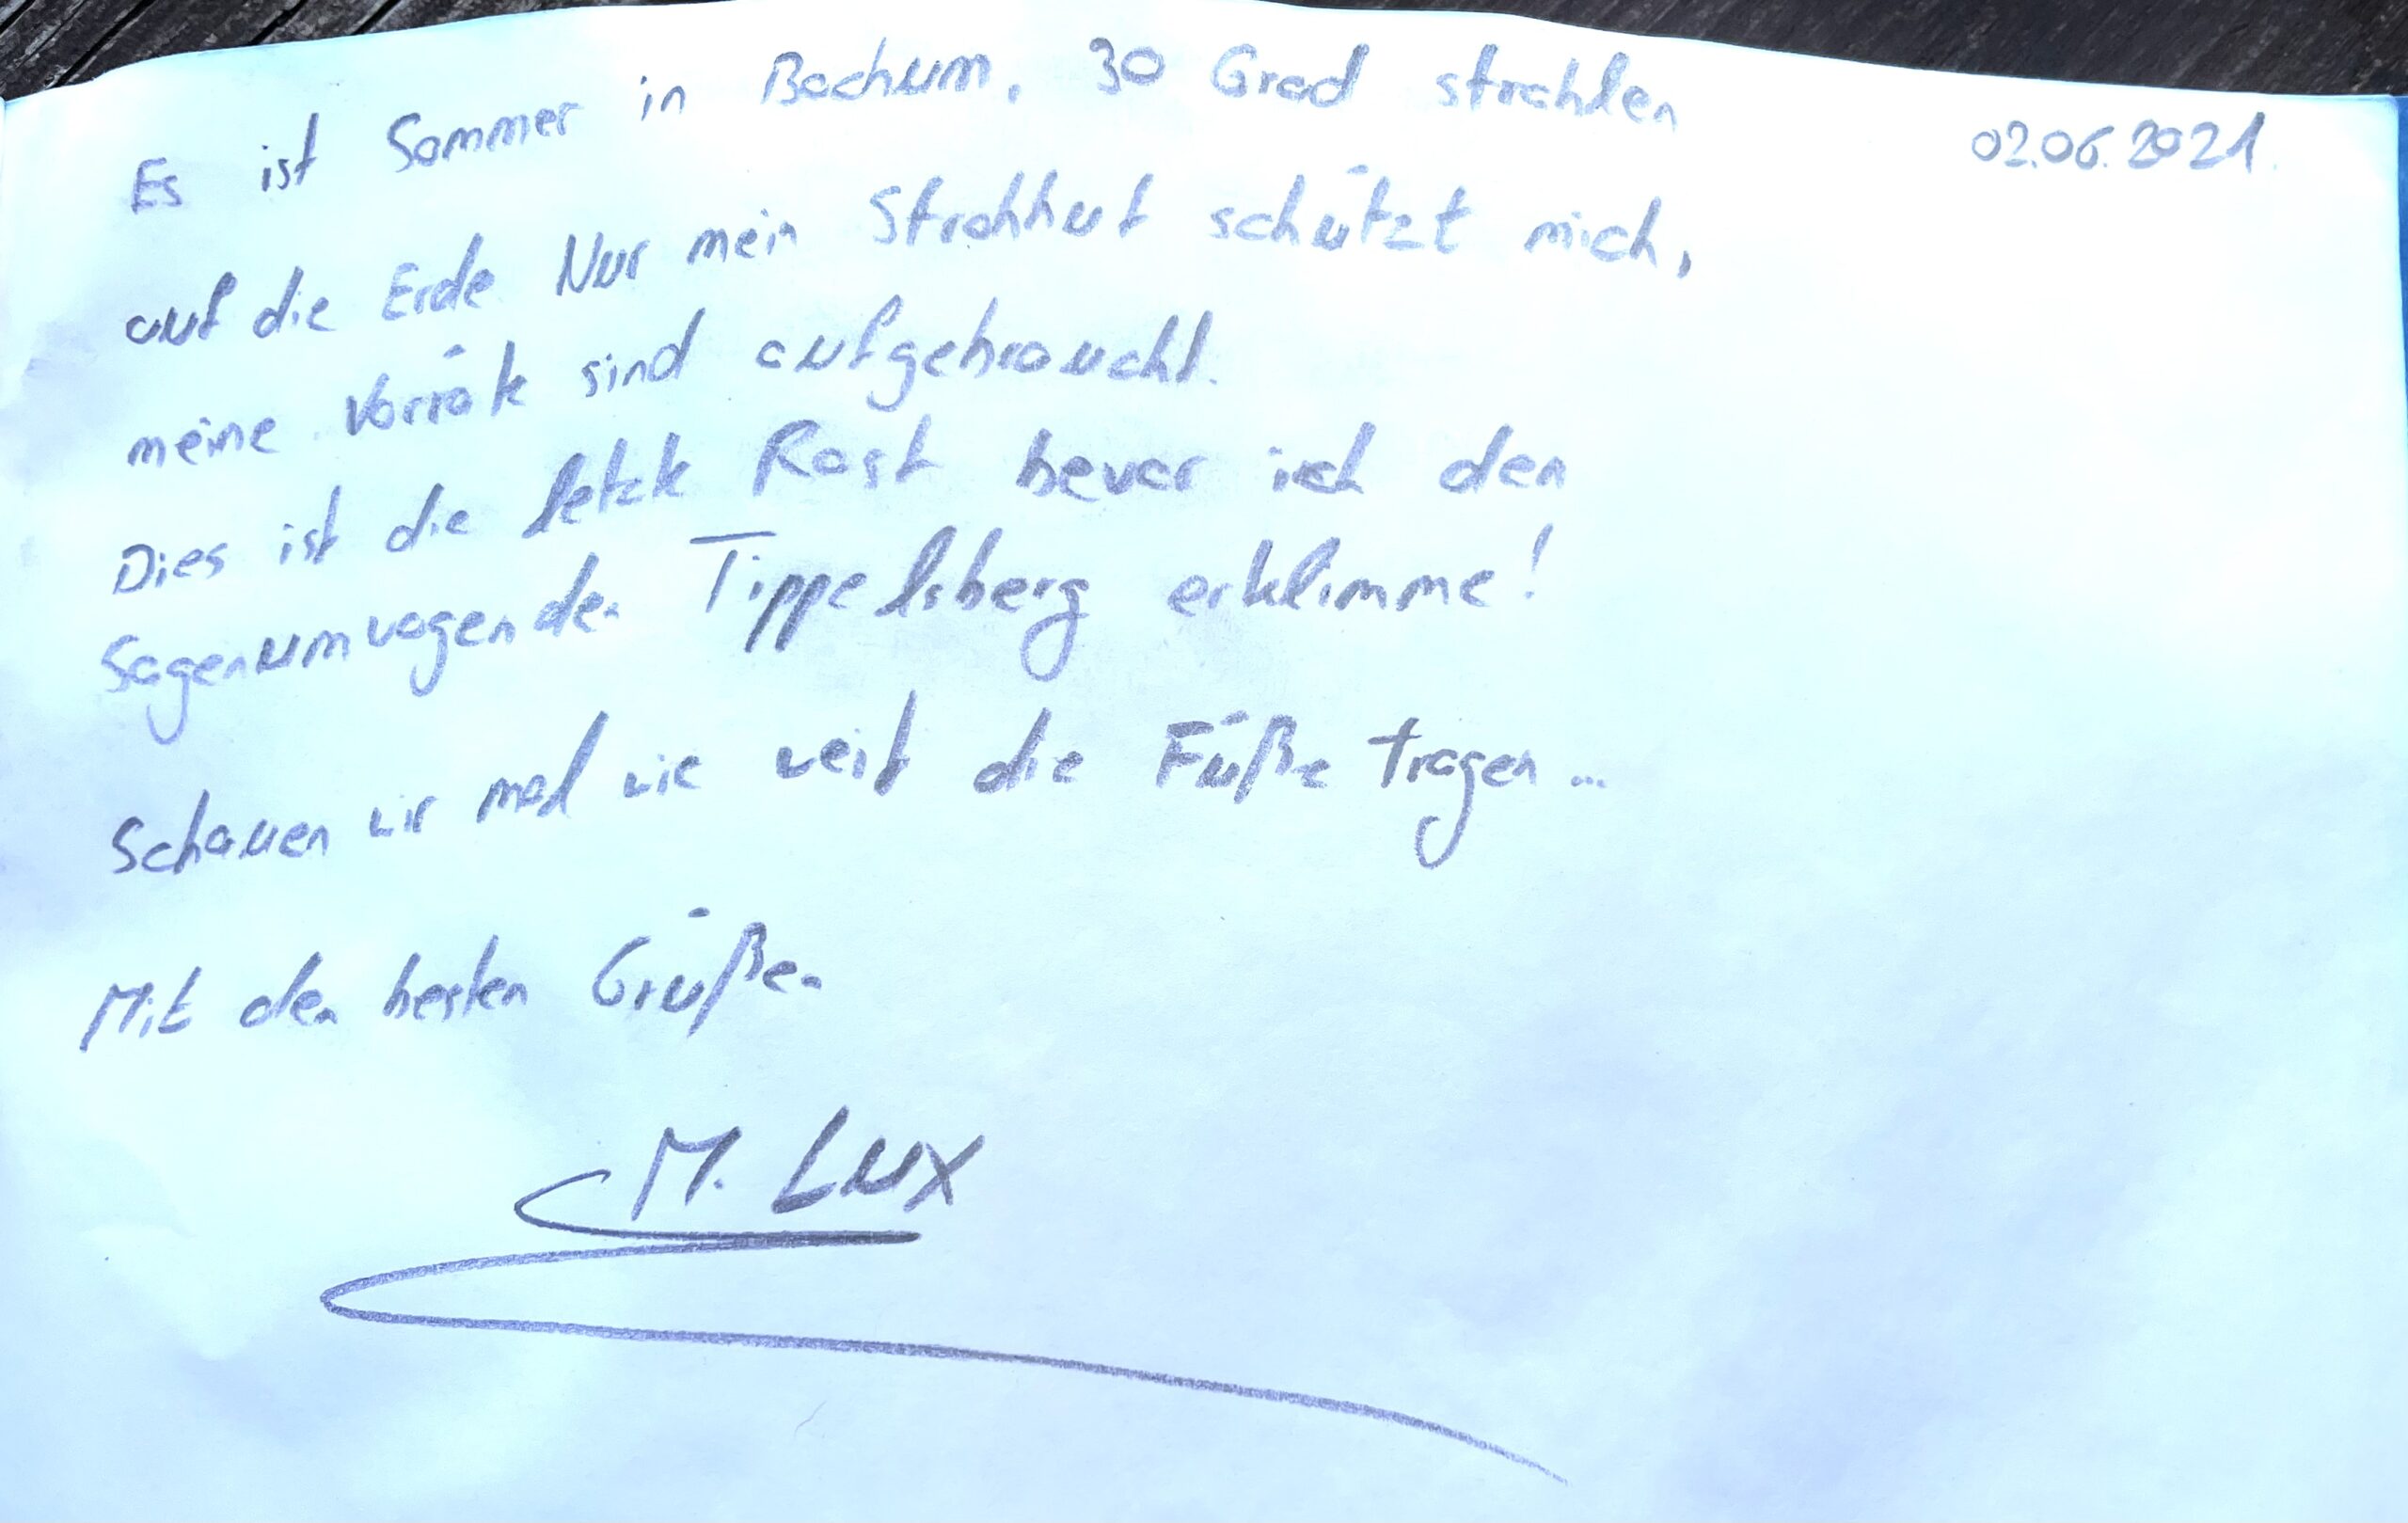 Es ist Sommer in Bochum, 30 Grad strahlen
02.06.2021.
auf die Erde Nur mein Strohhut schützt mich,
meine Vorräte sind aufgebraucht.
Dies ist die letzte Rast bevor ich den
Sagenumwogenden Tippelsberg erklimme!
Schauen wir mal wie weit die Füße tragen...
Mit den besten Grüßen
M. LUX